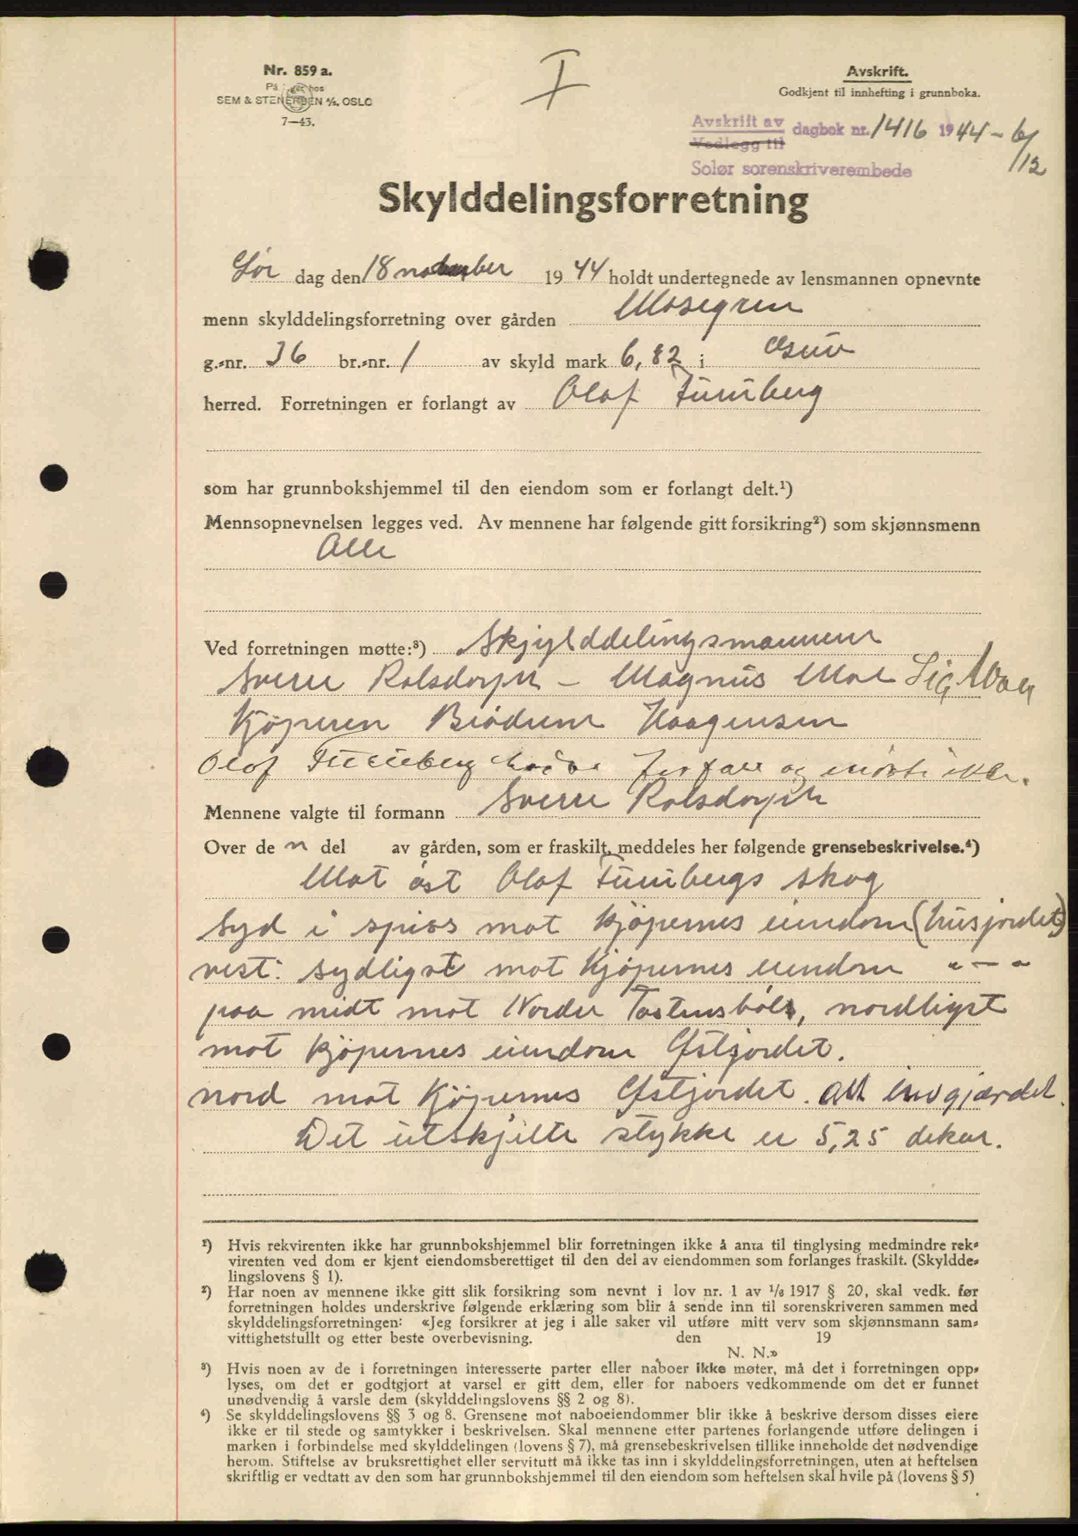 Nr. 859 a.
SEM & STENERSEN A/S. OSLO
7—43.
I
Avskrift.
Godkjent til innhefting i grunnboka.
Avskrift av
Vedlegg til
dagbok nr. 1416 1944 - 6/12
Solør sorenskriverembede
Skylddelingsforretning
Lør dag den 18 november 1944 holdt undertegnede av lensmannen opnevnte
menn skylddelingsforretning over gården Mosegren
g.-nr. 36 br.-nr. 1 av skyld mark 6,82 i
herred. Forretningen er forlangt av Olaf Furuberg
som har grunnbokshjemmel til den eiendom som er forlangt delt.¹)
Mennsopnevnelsen legges ved. Av mennene har følgende gitt forsikring²) som skjønnsmenn
Alle
Ved forretningen møtte:³) Skjylddelingsmannene
Sverre Rolsdorph - Magnus Moe Sig. Moen
Kjøperen Brødrene Haagensen
Olaf Furuberg hadde forfall og møtte ikke.
Mennene valgte til formann Sverre Rolsdorph
Over de n del av gården, som er fraskilt, meddeles her følgende grensebeskrivelse.⁴)
Mot øst Olaf Furubergs skog
Syd i spiss mot Kjøpernes eiendom (husjordet)
vest: sydligst mot Kjøpernes eiendom " — "
paa midt mot Nordre Tostensbøl, nordligst
mot Kjøpernes eiendom Østjordet.
nord mot Kjøpernes Østjordet. Alt inngjærdet.
Det utskjilte stykke er 5,25 dekar.
¹) Hvis rekvirenten ikke har grunnbokshjemmel blir forretningen ikke å anta til tinglysing medmindre rek-
virenten ved dom er kjent eiendomsberettiget til den del av eiendommen som forlanges fraskilt. (Skyldde-
lingslovens § 1).
²) Har noen av mennene ikke gitt slik forsikring som nevnt i lov nr. 1 av 1/6 1917 § 20, skal vedk. før
forretningen holdes underskrive følgende erklæring som blir å sende inn til sorenskriveren sammen med
skylddelingsforretningen: «Jeg forsikrer at jeg i alle saker vil utføre mitt verv som skjønnsmann sam-
vittighetstullt og etter beste overbevisning. den 19
N. N.»
³) Hvis noen av de i forretningen interesserte parter eller naboer ikke møter, må det i forretningen opp-
lyses, om det er godtgjort at varsel er gitt dem, eller for naboers vedkommende om det er funnet
unødvendig å varsle dem (skylddelingslovens §§ 2 og 8).
⁴) Se skylddelingslovens §§ 3 og 8. Grensene mot naboeiendommer blir ikke å beskrive dersom disses eiere
ikke er til stede og samtykker i beskrivelsen. Skal mennene etter partenes forlangende utføre delingen i
marken i forbindelse med skylddelingen (lovens § 7), må grensebeskrivelsen tillike inneholde det nødvendige
herom. Stiftelse av bruksrettighet eller servitutt må ikke tas inn i skylddelingsforretningen, uten at heftelsen
skriftlig er vedtatt av den som har grunnbokshjemmel til den eiendom som heftelsen skal hvile på (lovens § 5)